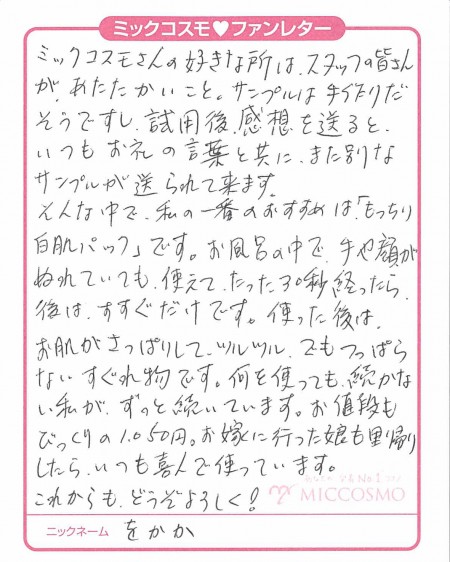 ミックコスモ♥ファンレター
ミックコスモさんの好きな所は、スタッフの皆さん
が、あたたかいこと。サンプルは手作りだ
そうですし、試用後、感想を送ると、
いつもお礼の言葉と共に、また別な
サンプルが送られて来ます。
そんな中で、私の一番のおすすめは、「もっちり
白肌パック」です。お風呂の中で、手や顔が
ぬれていても、使えて、たった30秒経ったら、
後は、すすぐだけです。使った後は、
お肌がさっぱりして、ツルツル、でもつっぱら
ないすぐれ物です。何を使っても、続かな
い私が、ずっと続いています。お値段も
びっくりの1.050円。お嫁に行った娘も里帰り
したら、いつも喜んで使っています。
これからも、どうぞよろしく!
No.1
MICCOSMO
ニックネーム をかか